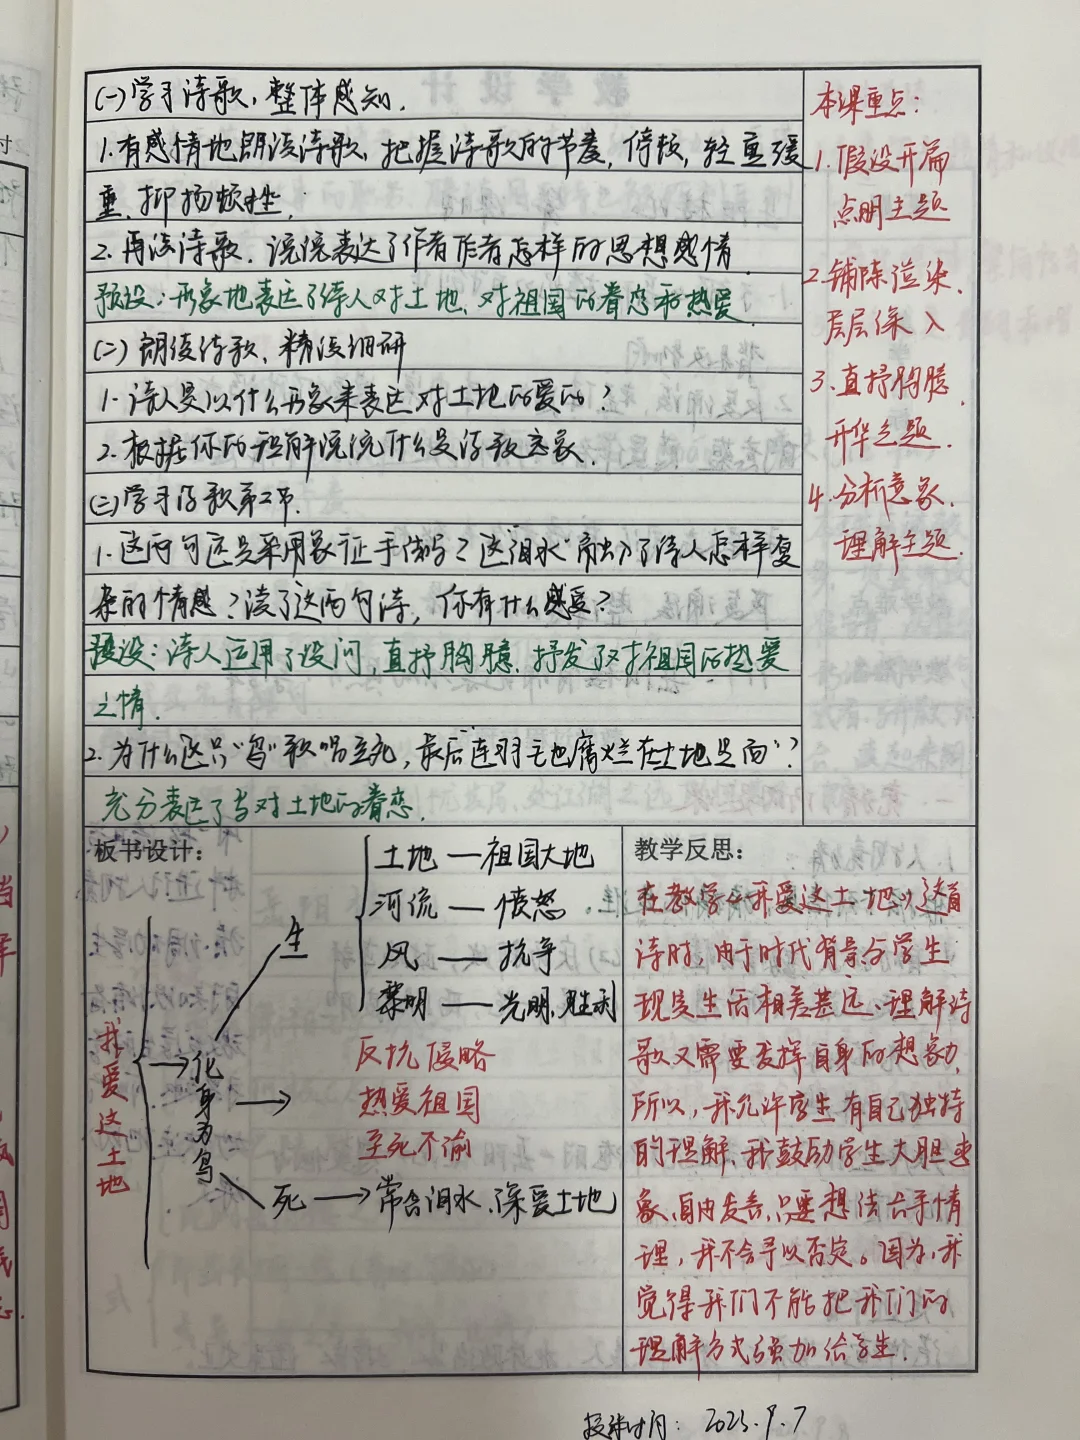 (一)学习诗歌,整体感知.
1.有感情地朗读诗歌,把握诗歌的节奏,停顿,轻重缓
重,抑扬顿挫.
2.再读诗歌.说说表达了作者作者怎样的思想感情
预设:形象地表达了诗人对土地,对祖国的眷恋和热爱
(二)朗读诗歌,精读细研
1.诗人是以什么形象来表达对土地的爱的?
2.根据你的理解说说什么是诗歌意象.
(三)学习诗歌第二节.
1.这两句还是采用象征手法吗?这"泪水"融入了诗人怎样复
杂的情感?读了这两句诗,你有什么感受?
预设:诗人运用了设问,直抒胸臆,抒发了对祖国的热爱
之情.
2.为什么这只"鸟"歌唱至死,最后连羽毛也腐烂在土地里面?
充分表达了当对土地的眷恋.
本课重点:
1.假设开篇
点明主题
2.铺陈渲染.
层层深入
3.直抒胸臆.
升华主题.
4.分析意象.
理解主题.
板书设计:
我爱这土地
化身为鸟
生
土地—祖国大地
河流—愤怒
风—抗争
黎明—光明,胜利
反抗侵略
热爱祖国
至死不渝
死→常含泪水.深爱土地
教学反思:
在教学《我爱这土地》这首
诗时,由于时代背景与学生
现实生活相差甚远.理解诗
歌又需要发挥自身的想象力,
所以,我允许学生有自己独特
的理解,我鼓励学生大胆想
象,自由发言,只要想法合乎情
理,我不会予以否定。因为,我
觉得我们不能把我们的
理解方式强加给学生.
授课时间:2023.9.7